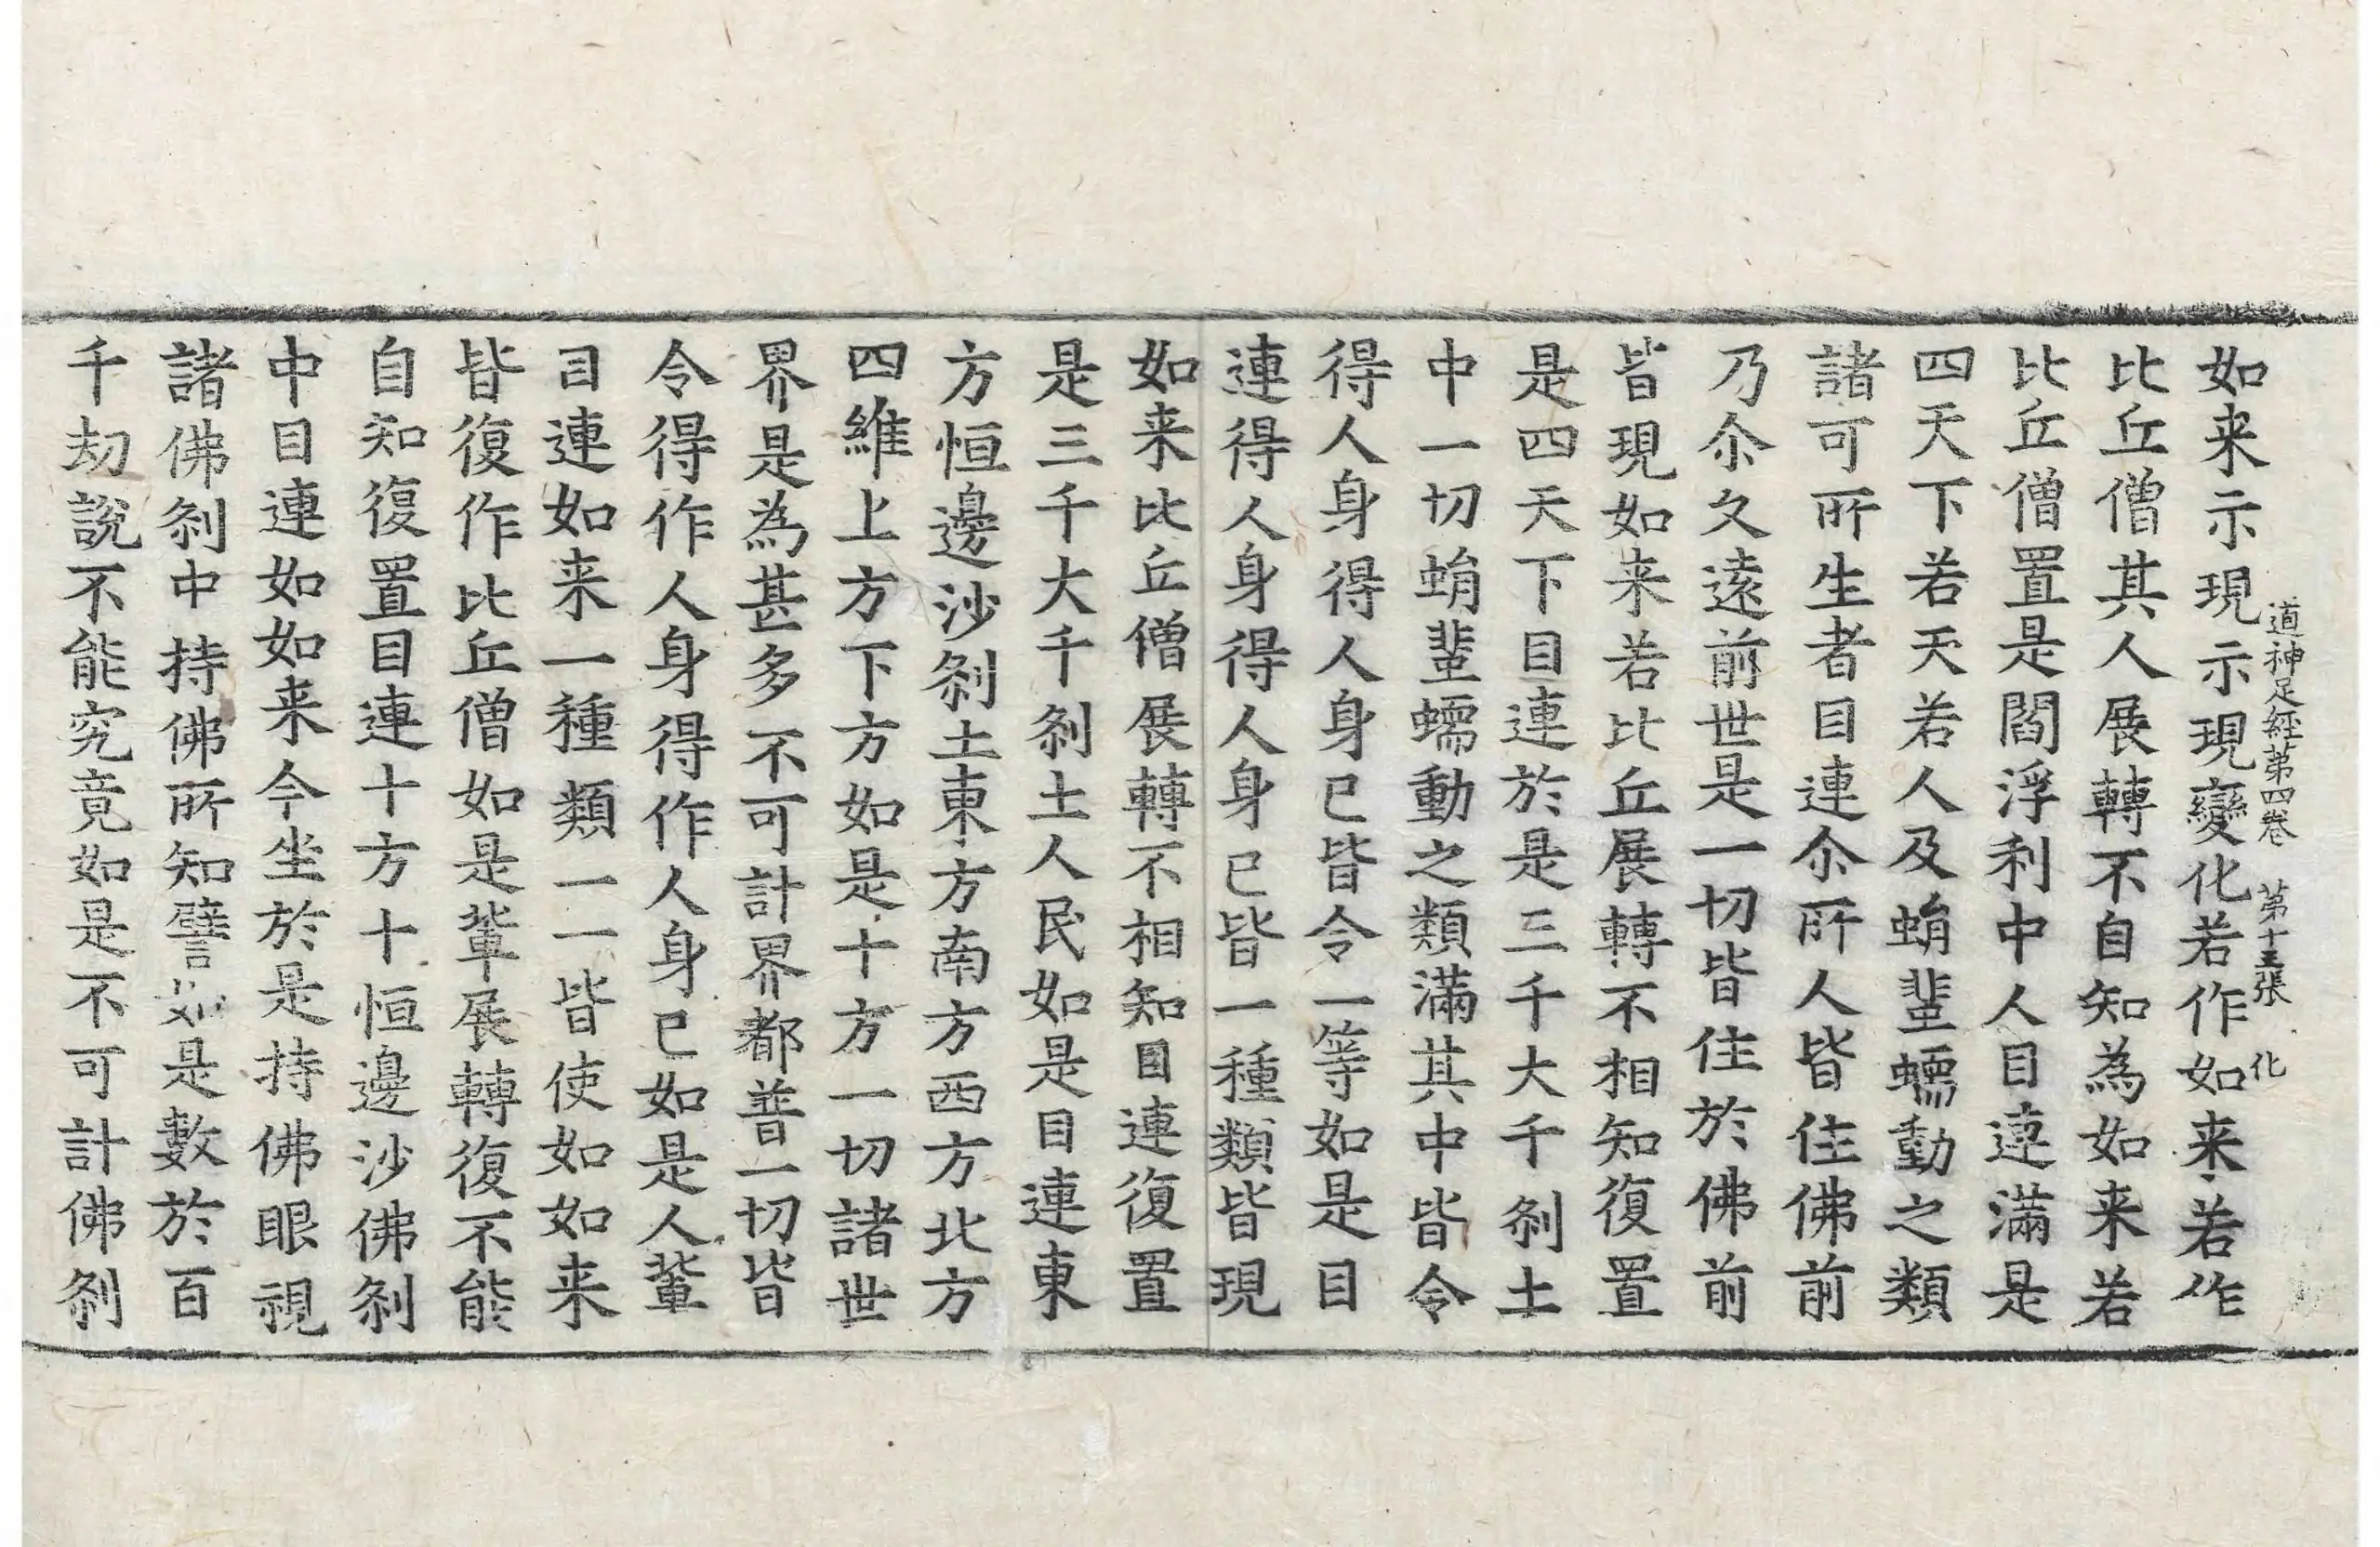 道神足經第四卷 第十五張 化
如来示現示現變化若作如来若作
比丘僧其人展轉不自知為如来若
比丘僧置是閻浮利中人目連滿是
四天下若天若人及蜎蜚蠕動之類
諸可所生者目連尒所人皆住佛前
乃尒久遠前世是一切皆住於佛前
皆現如来若比丘展轉不相知復置
是四天下目連於是三千大千刹土
中一切蜎蜚蠕動之類滿其中皆令
得人身得人身已皆令一等如是目
連得人身得人身已皆一種類皆現
如来比丘僧展轉不相知目連復置
是三千大千刹土人民如是目連東
方恒邊沙刹土東方南方西方北方
四維上方下方如是十方一切諸世
界是為甚多不可計界都普一切皆
令得作人身得作人身已如是人輩
目連如来一種類一一皆使如如来
皆復作比丘僧如是輩展轉復不能
自知復置目連十方十恒邊沙佛刹
中目連如如来今坐於是持佛眼視
諸佛刹中持佛所知譬如是數於百
千劫說不能究竟如是不可計佛刹